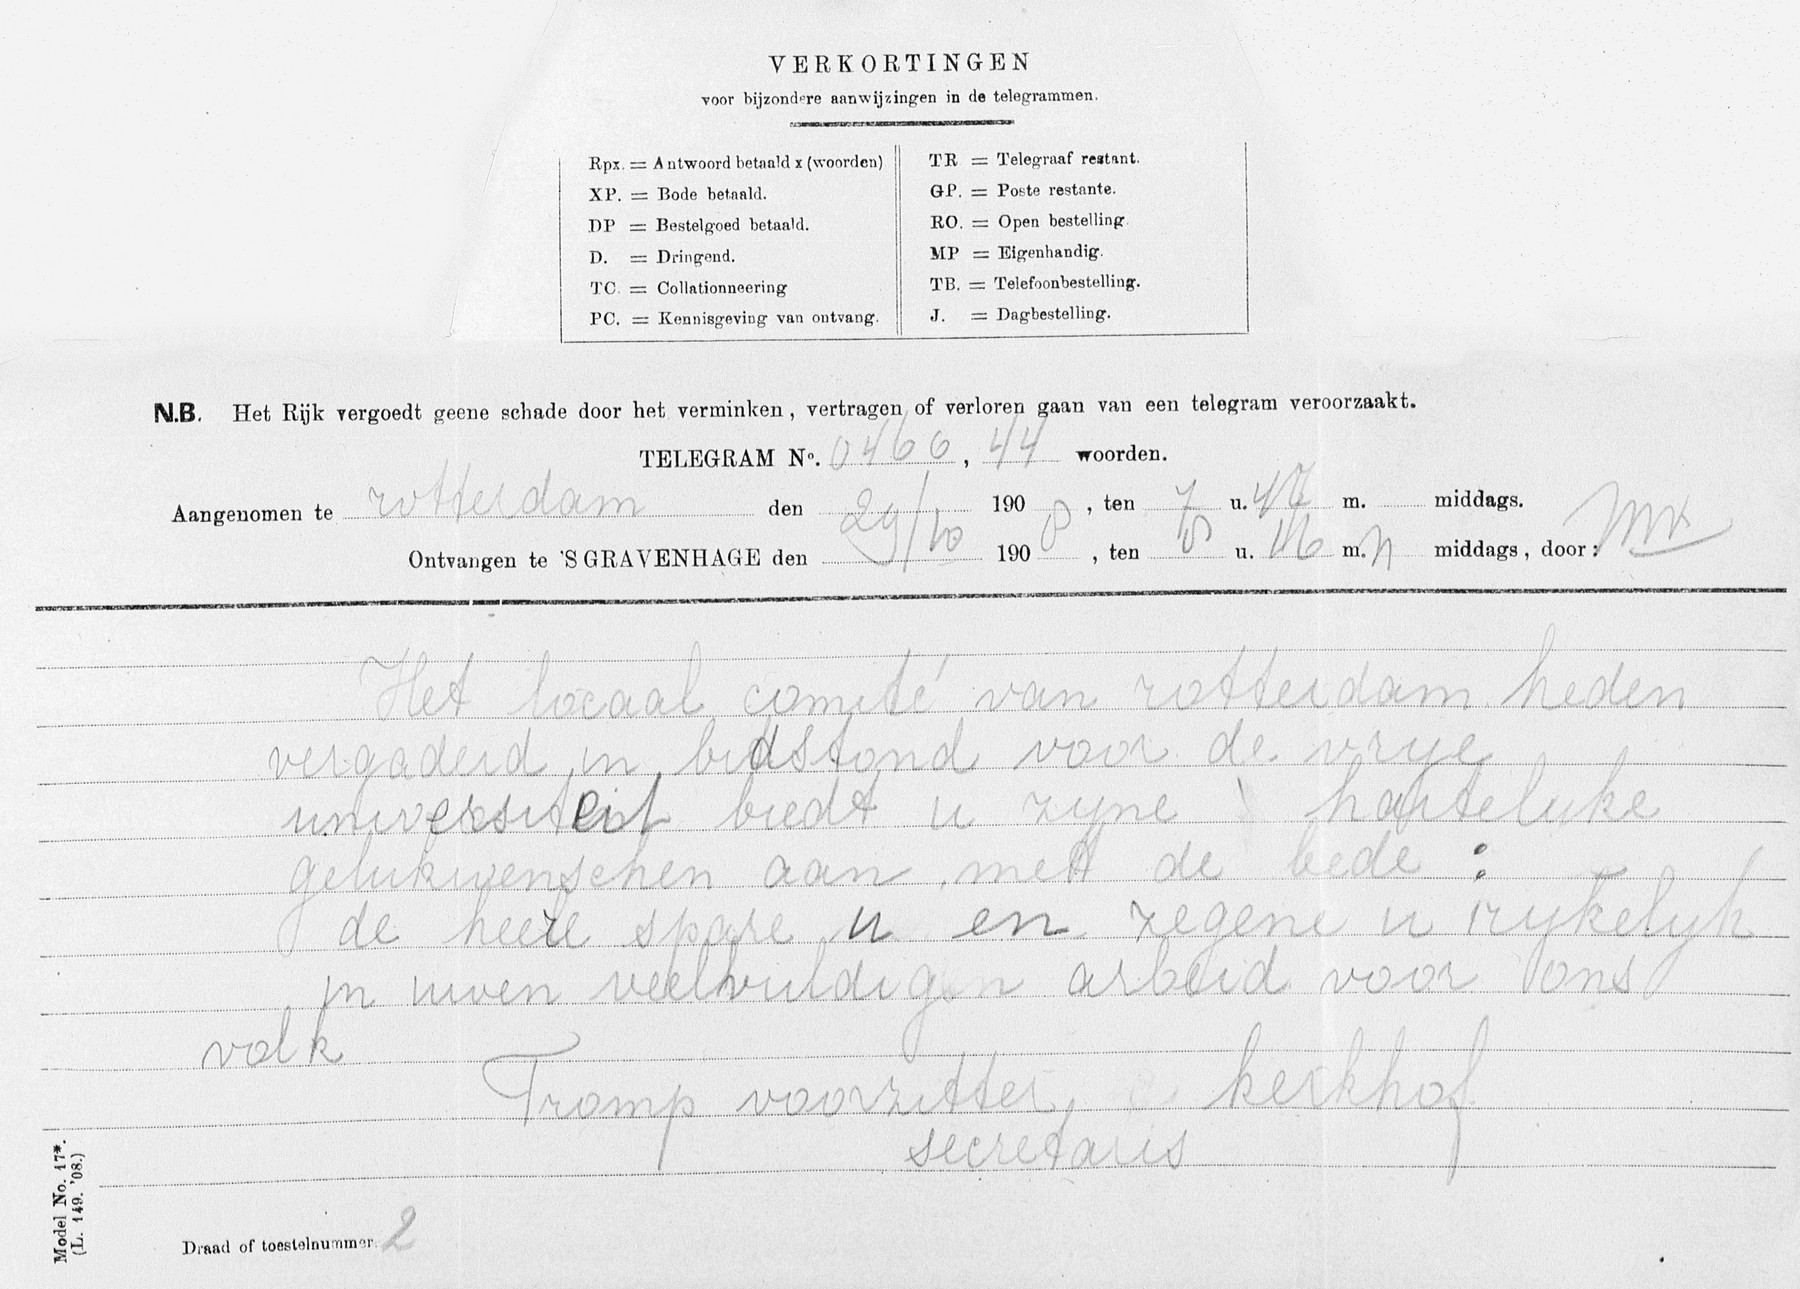 VERKORTINGEN
voor bijzondere aanwijzingen in de telegrammen.
Rpx. = Antwoord betaald x (woorden)
XP. = Bode betaald.
DP = Bestelgoed betaald.
D. = Dringend.
TC. = Collationneering
PC. = Kennisgeving van ontvang.
TR = Telegraaf restant.
GP. = Poste restante.
RO. = Open bestelling.
MP = Eigenhandig.
TB. = Telefoonbestelling.
J. = Dagbestelling.
N.B. Het Rijk vergoedt geene schade door het verminken, vertragen of verloren gaan van een telegram veroorzaakt.
TELEGRAM No. 0466, 44 woorden.
Aangenomen te rotterdam den 190 , ten 7 u. 42 m. middags.
Ontvangen te 'S GRAVENHAGE den 29/10 190 8, ten 8 u. 16 m. n middags, door:
Het locaal comité van rotterdam heden
vergaderd in bidstond voor de vrye
universiteit biedt u zyne hartelyke
gelukwenschen aan met de bede :
de heere spare u en zegene u rykelyk
in uwen veelvuldigen arbeid voor ons
volk
Tromp voorzitter, kerkhof
secretaris
Draad of toestelnummer 2
Model No. 17*.
(L. 149. '08.)